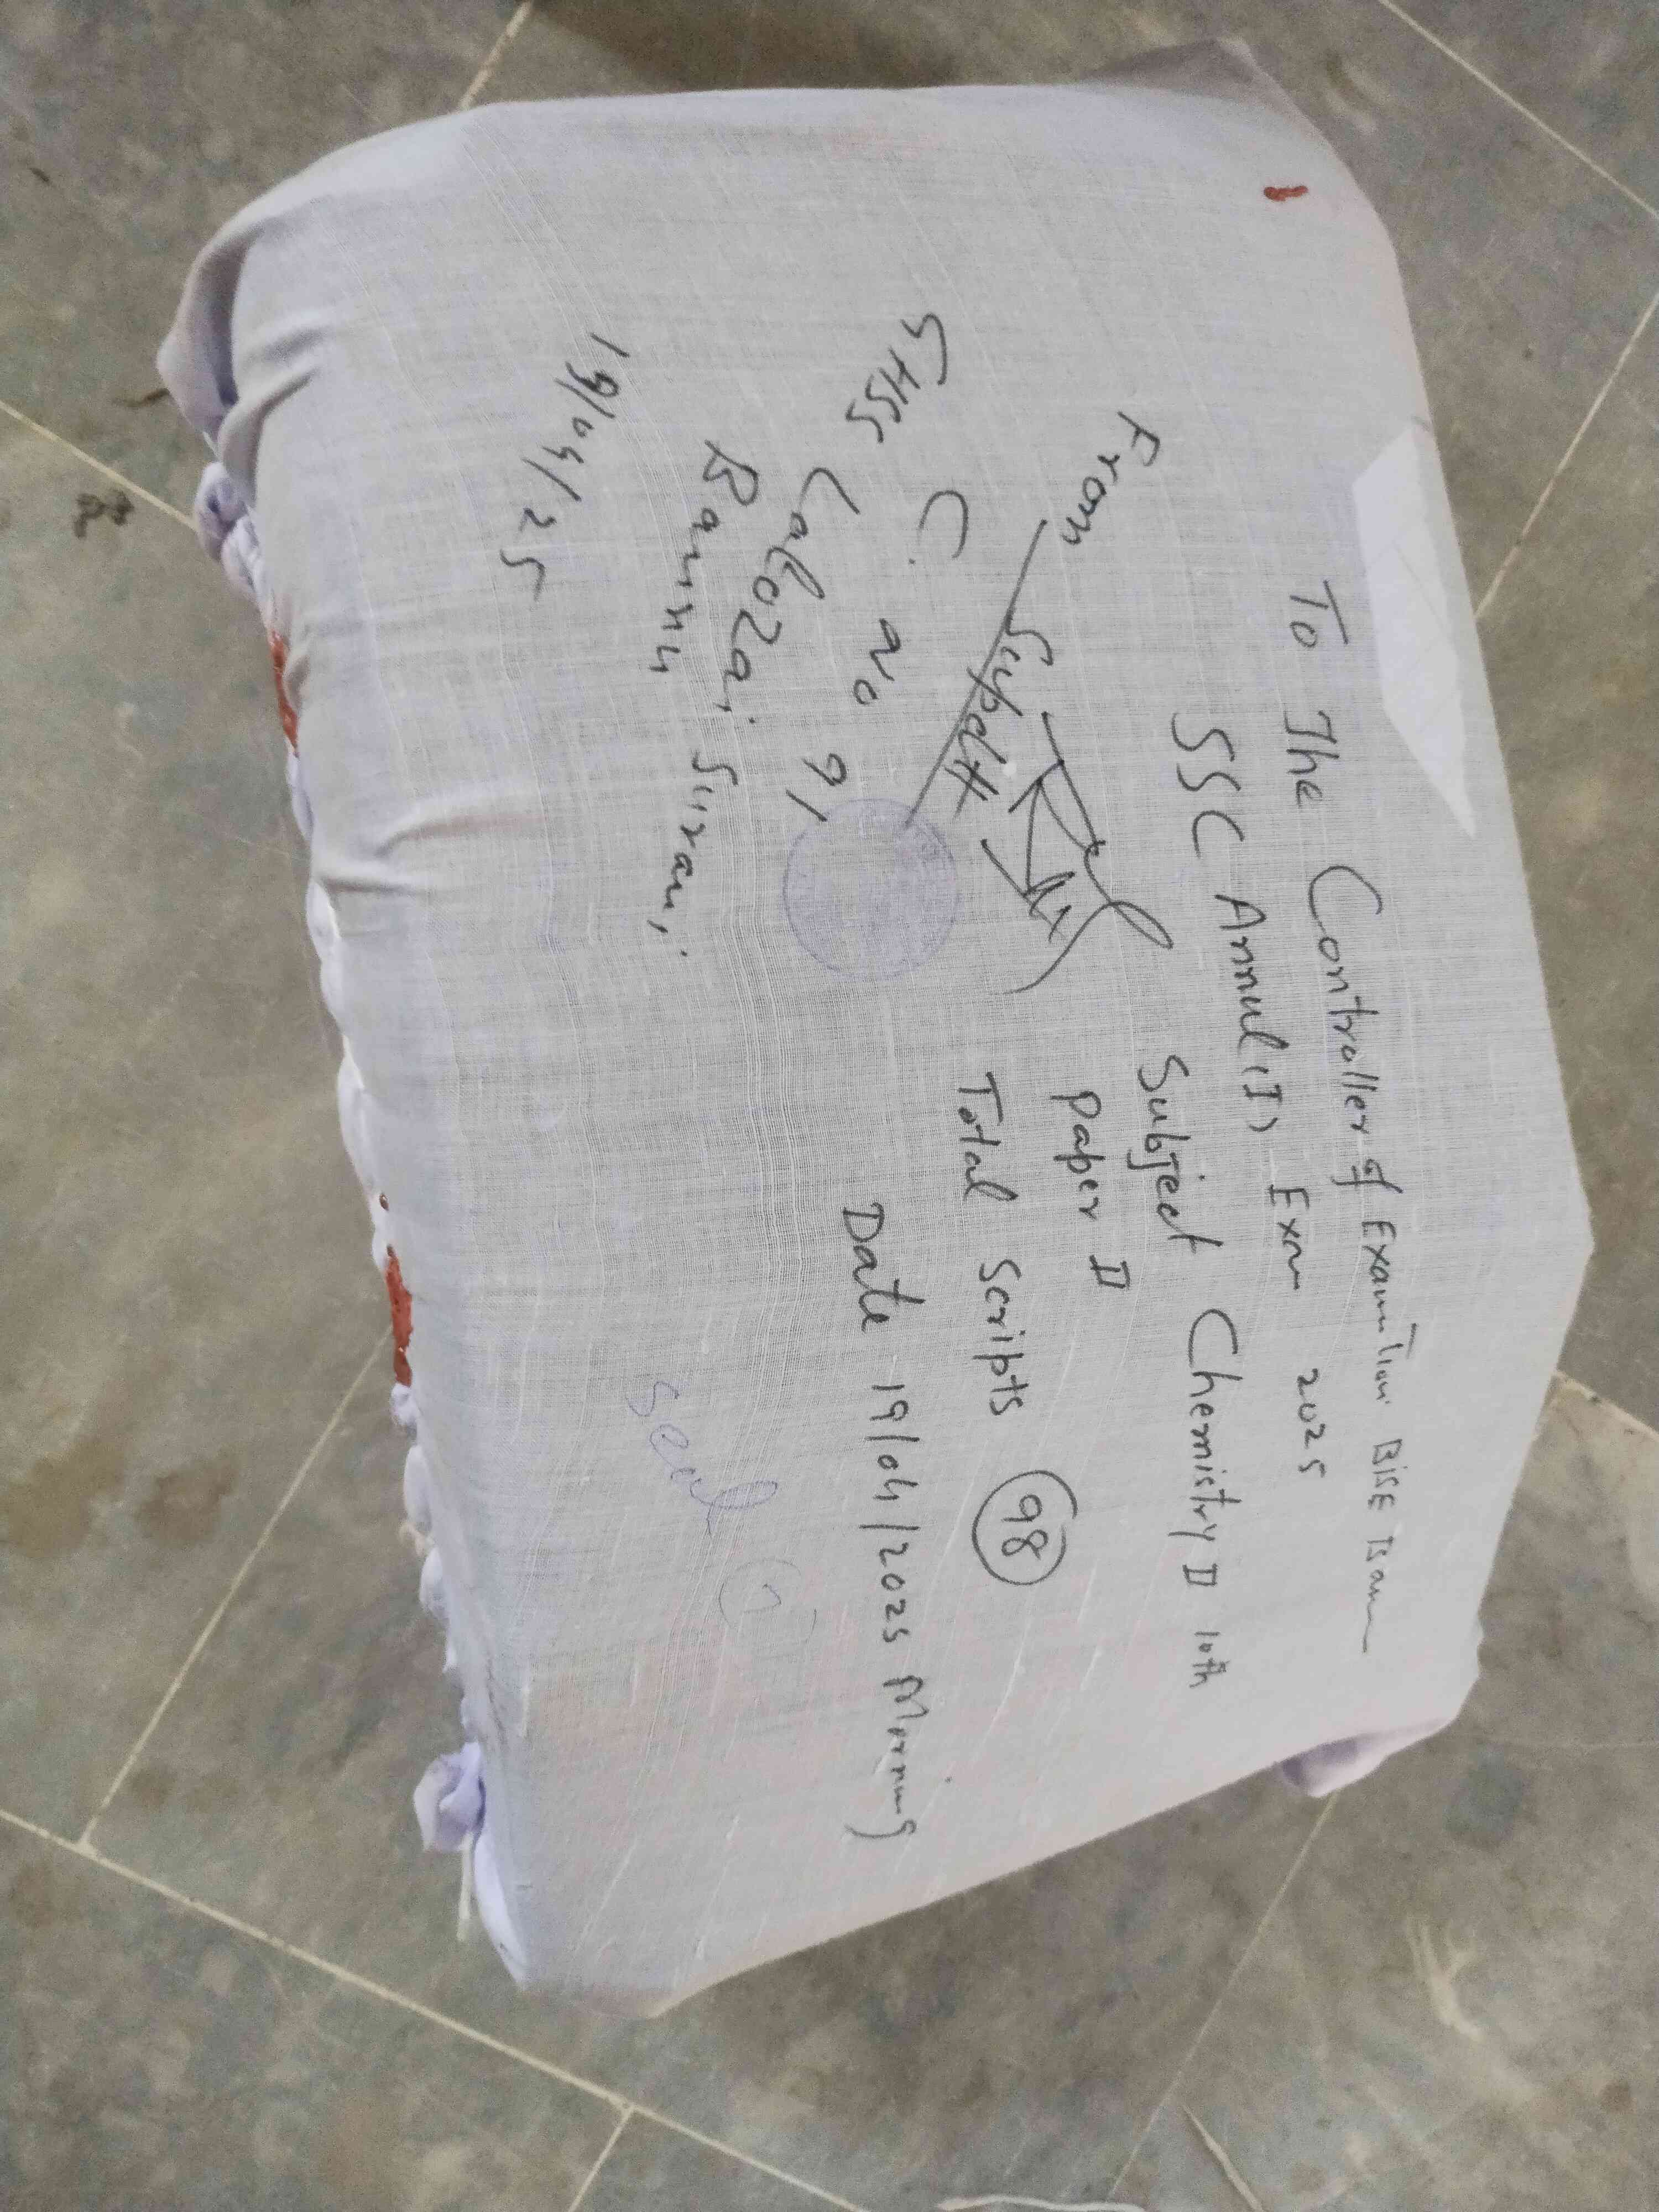 To The Controller of Examination BISE Bannu
SSC Annual (I) Exam 2025
Subject Chemistry II 10th
Paper II
Total Scripts 98
Date 19/04/2025 Morning
Seal (1)
From
Supdtt
C. No 91
GHSS Lalozai Surani
Bannu
19/04/25